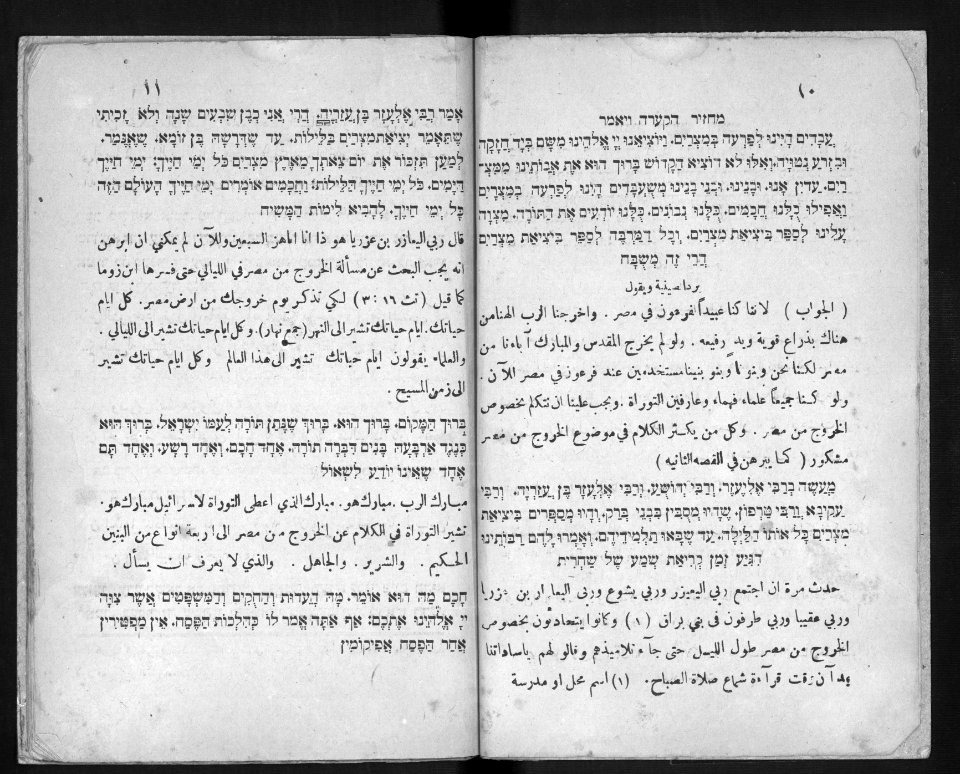 ١٠
מחזיר הקערה ויאמר
עֲבָדִים הָיִינוּ לְפַרְעֹה בְּמִצְרַיִם. וַיּוֹצִיאֵנוּ יְיָ אֱלֹהֵינוּ מִשָּׁם בְּיָד חֲזָקָה
וּבִזְרֹעַ נְטוּיָה. וְאִלּוּ לֹא הוֹצִיא הַקָּדוֹשׁ בָּרוּךְ הוּא אֶת אֲבוֹתֵינוּ מִמִּצְ
רַיִם. עֲדַיִן אָנוּ. וּבָנֵינוּ. וּבְנֵי בָנֵינוּ מְשֻׁעְבָּדִים הָיִנוּ לְפַרְעֹה בְּמִצְרַיִם
וַאֲפִילוּ כֻלָּנוּ חֲכָמִים. כֻּלָּנוּ נְבוֹנִים. כֻּלָּנוּ יוֹדְעִים אֶת הַתּוֹרָה. מִצְוָה
עָלֵינוּ לְסַפֵּר בִּיצִיאַת מִצְרַיִם. וְכָל הַמַּרְבֶּה לְסַפֵּר בִּיצִיאַת מִצְרַיִם
הֲרֵי זֶה מְשֻׁבָּח
يرد الصينية ويقول
( الجواب ) لاننا كنا عبيداً لفرعون في مصر . واخرجنا الرب الهنا من
هناك بذراع قوية ويد رفيعه . ولو لم يخرج المقدس والمبارك آباءنا من
مصر لكنا نحن وبنونا وبنو بنينا مستخدمين عند فرعون في مصر الآن .
ولو كنا جميعا علماء فهماء وعارفين التوراة . ويجب علينا ان نتكلم بخصوص
الخروج من مصر . وكل من يكثر الكلام في موضوع الخروج من مصر
مشكور ( كما يبرهن في القصه الثانيه )
מַעֲשֶׂה בְרַבִּי אֱלִיעֶזֶר. וְרַבִּי יְהוֹשֻׁעַ. וְרַבִּי אֶלְעָזָר בֶּן עֲזַרְיָה. וְרַבִּי
עֲקִיבָא וְרַבִּי טַרְפוֹן. שֶׁהָיוּ מְסֻבִּין בִּבְנֵי בְרַק. וְהָיוּ מְסַפְּרִים בִּיצִיאַת
מִצְרַיִם כָּל אוֹתוֹ הַלַּיְלָה. עַד שֶׁבָּאוּ תַלְמִידֵיהֶם. וְאָמְרוּ לָהֶם רַבּוֹתֵינוּ
הִגִּיעַ זְמַן קְרִיאַת שְׁמַע שֶׁל שַׁחֲרִית
حدث مرة ان اجتمع ربي اليعيزر وربي يشوع وربي اليعازار بن عزريا
وربي عقيبا وربي طرفون في بني براق (١) وكانوا يتحادثون بخصوص
الخروج من مصر طول الليل حتى جآء تلاميذهم وقالو لهم ياساداتنا
قد آن وقت قرآءة شماع صلاة الصباح . (١) اسم محل او مدرسة
١١
אָמַר רַבִּי אֶלְעָזָר בֶּן עֲזַרְיָה. הֲרֵי אֲנִי כְּבֶן שִׁבְעִים שָׁנָה וְלֹא זָכִיתִי
שֶׁתֵּאָמֵר יְצִיאַת מִצְרַיִם בַּלֵּילוֹת. עַד שֶׁדְּרָשָׁהּ בֶּן זוֹמָא. שֶׁנֶּאֱמַר.
לְמַעַן תִּזְכּוֹר אֶת יוֹם צֵאתְךָ מֵאֶרֶץ מִצְרַיִם כֹּל יְמֵי חַיֶּיךָ: יְמֵי חַיֶּיךָ
הַיָּמִים. כֹּל יְמֵי חַיֶּיךָ הַלֵּילוֹת: וַחֲכָמִים אוֹמְרִים יְמֵי חַיֶּיךָ הָעוֹלָם הַזֶּה
כָּל יְמֵי חַיֶּיךָ. לְהָבִיא לִימוֹת הַמָּשִׁיחַ
قال ربي اليعازر بن عزريا هو ذا انا اناهز السبعين وللآن لم يمكني ان ابرهن
انه يجب البحث عن مسألة الخروج من مصر في الليالي حتى فسرها ابن زوما
كما قيل ( تث ١٦ : ٣ ) لكي تذكر يوم خروجك من ارض مصر . كل ايام
حياتك . ايام حياتك تشير الى النهر (جمع نهار) . وكل ايام حياتك تشير الى الليالي .
والعلماء يقولون ايام حياتك تشير الى هذا العالم وكل ايام حياتك تشير
الى زمن المسيح .
בָּרוּךְ הַמָּקוֹם. בָּרוּךְ הוּא. בָּרוּךְ שֶׁנָּתַן תּוֹרָה לְעַמּוֹ יִשְׂרָאֵל. בָּרוּךְ הוּא
כְּנֶגֶד אַרְבָּעָה בָּנִים דִּבְּרָה תוֹרָה. אֶחָד חָכָם. וְאֶחָד רָשָׁע. וְאֶחָד תָּם
אֶחָד שֶׁאֵינוֹ יוֹדֵעַ לִשְׁאוֹל
مبارك الرب . مبارك هو . مبارك الذي اعطى التوراة لاسرائيل مبارك هو .
تشير التوراة في الكلام عن الخروج من مصر الى اربعة انواع من البنين
الحكيم . والشرير . والجاهل . والذي لا يعرف ان يسأل .
חָכָם מַה הוּא אוֹמֵר. מָה הָעֵדוּת וְהַחֻקִים וְהַמִּשְׁפָּטִים אֲשֶׁר צִוָּה
יְיָ אֱלֹהֵינוּ אֶתְכֶם: אַף אַתָּה אֱמָר לוֹ כְּהִלְכוֹת הַפֶּסַח. אֵין מַפְטִירִין
אַחַר הַפֶּסַח אֲפִיקוֹמִין